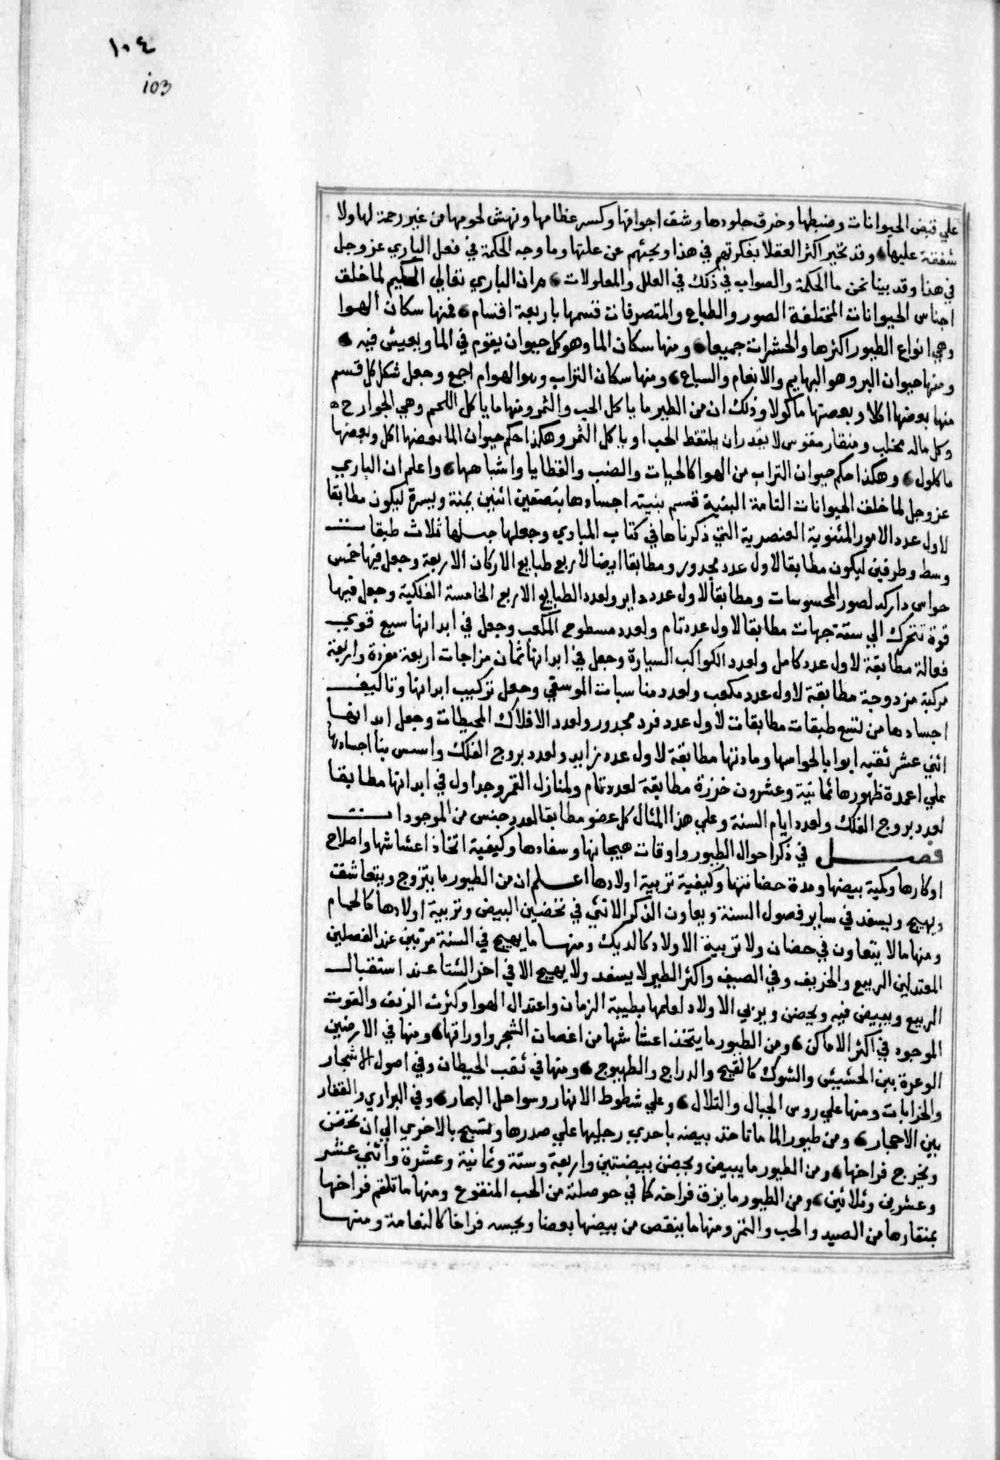 ١٠٤
103
علي قبض الحيوانات وضبطها وخرق جلودها وشق اجوافها وكسر عظامها ونهش لحومها من غير رحمة لها ولا
شفقة عليها وقد تحير اكثر العقلا بفكرتهم في هذا وبحثهم عن علتها وما وجه الحكمة في فعل الباري عز وجل
في هذا وقد بينا نحن ما الحكمة والصواب في ذلك في العلل والمعلولات ان الباري تعالي الحكيم لما خلق
اجناس الحيوانات المختلفة الصور والطباع والمتصرفات قسمها باربعة اقسام فمنها سكان الهوا
وهي انواع الطيور اكثرها والحشرات جميعا ومنها سكان الما وهو كل حيوان يقوم في الما ويعيش فيه
ومنها حيوان البر وهو البهايم والانعام والسباع ومنها سكان التراب وهو الهوام اجمع وجعل شكل كل قسم
منها بعضها اكلا وبعضها ماكولا وذلك ان من الطير ما ياكل الحب والثمر ومنها ما ياكل اللحم وهي الجوارح
وكل ماله مخلب ومنقار مقوس لا يقدر ان يلتقط الحب او ياكل الثمر وهكذا حكم حيوان الما بعضها اكل وبعضها
ماكول وهكذا حكم حيوان التراب من الهوا كالحيات والضب والعظايا واشباهها واعلم ان الباري
عز وجل لما خلق الحيوانات التامة البنية قسم بنية اجسادها بنصفين اثنين يمنة ويسرة ليكون مطابقا
لاول عدد الامور المثنوية العنصرية التي ذكرناها في كتاب المبادي وجعلها جسلها ثلاث طبقات
وسط وطرفين ليكون مطابقا لاول عدد مجدور ومطابقا ايضا لاربع طبايع الاركان الاربعة وجعل فيها خمس
حواس داركه لصور المحسوسات ومطابقا لاول عدد داير ولعدد الطبايع الاربع الخامسة الفلكية وجعل فيها
قوة تتحرك الي ستة جهات مطابقا لاول عدد تام ولعدد مسطوح المكعب وجعل في ابدانها سبع قوي
فعالة مطابقة لاول عدد كامل ولعدد الكواكب السيارة وجعل في ابدانها ثمان مزاجات اربعة مفردة واربعة
مركبة مزدوجة مطابقة لاول عدد مكعب ولعدد مناسبات الموسقي وجعل تركيب ابدانها وتاليف
اجسادها من تسع طبقات مطابقات لاول عدد فرد مجدور ولعدد الافلاك المحيطات وجعل ابدانها
اثني عشر ثقبه ابوابا لحواسها ومادتها مطابقة لاول عدد زايد ولعدد بروج الفلك واسس بنا اجسادها
علي اعمدة ظهورها ثمانية وعشرون خرزة مطابقة لعدد تام ولمنازل القمر وجداول في ابدانها مطابقا
لعدد بروج الفلك ولعدد ايام السنة وعلي هذا المثال كل عضو مطابقا لعدد جنس من الموجودات
فصل في ذكر احوال الطيور واوقات هيجانها وسفادها وكيفية اتخاذ اعشاشها واصلاح
اوكارها وكمية بيضها ومدة حضانتها وكيفية تربية اولادها اعلم ان من الطيور ما يتزوج ويتعاشقت
ويهيج ويسفد في ساير فصول السنة ويعاون الذكر الانثي في تحضين البيض وتربية اولادها كالحمام
ومنها مالا يتعاون في حضان ولا تربية الاولاد كالديك ومنها ما يهيج في السنة مرتين عند الفصلين
المعتدلين الربيع والخريف وفي الصيف واكثر الطير لا يسفد ولا يهيج الا في اخر الشتا عند استقبال
الربيع ويبيض فيه ويحضن ويربي الاولاد لعلمها بطيبة الزمان واعتدال الهوا وكثرت الريف والقوت
الموجود في اكثر الاماكن ومن الطيور ما يتخذ اعشاشها من اغصان الشجر واوراقها ومنها في الارضين
الوعرة بين الحشيش والشوك كالقبج والدراج والطيهوج ومنها في ثقب الحيطان وفي اصول الاشجار
والخرابات ومنها علي روس الجبال والتلال وعلي شطوط الانهار وسواحل البحار وفي البراري والقفار
بين الاحجار ومن طيور الما ما تاخذ بيضه باحدي رجليها علي صدرها وتسبح بالاخري الي ان تحضن
وتخرج فراخها ومن الطيور ما يبيض ويحضن بيضتين واربعة وستة وثمانية وعشرة واثني عشر
وعشرين وثلاثين ومن الطيور ما يزق فراخه كما في حوصلته من الحب المنقوع ومنها ما تلقم فراخها
بمنقارها من الصيد والحب والثمر ومنها ما ينقص من بيضها بعضا ويحسه فراخا كالنعامة ومنها